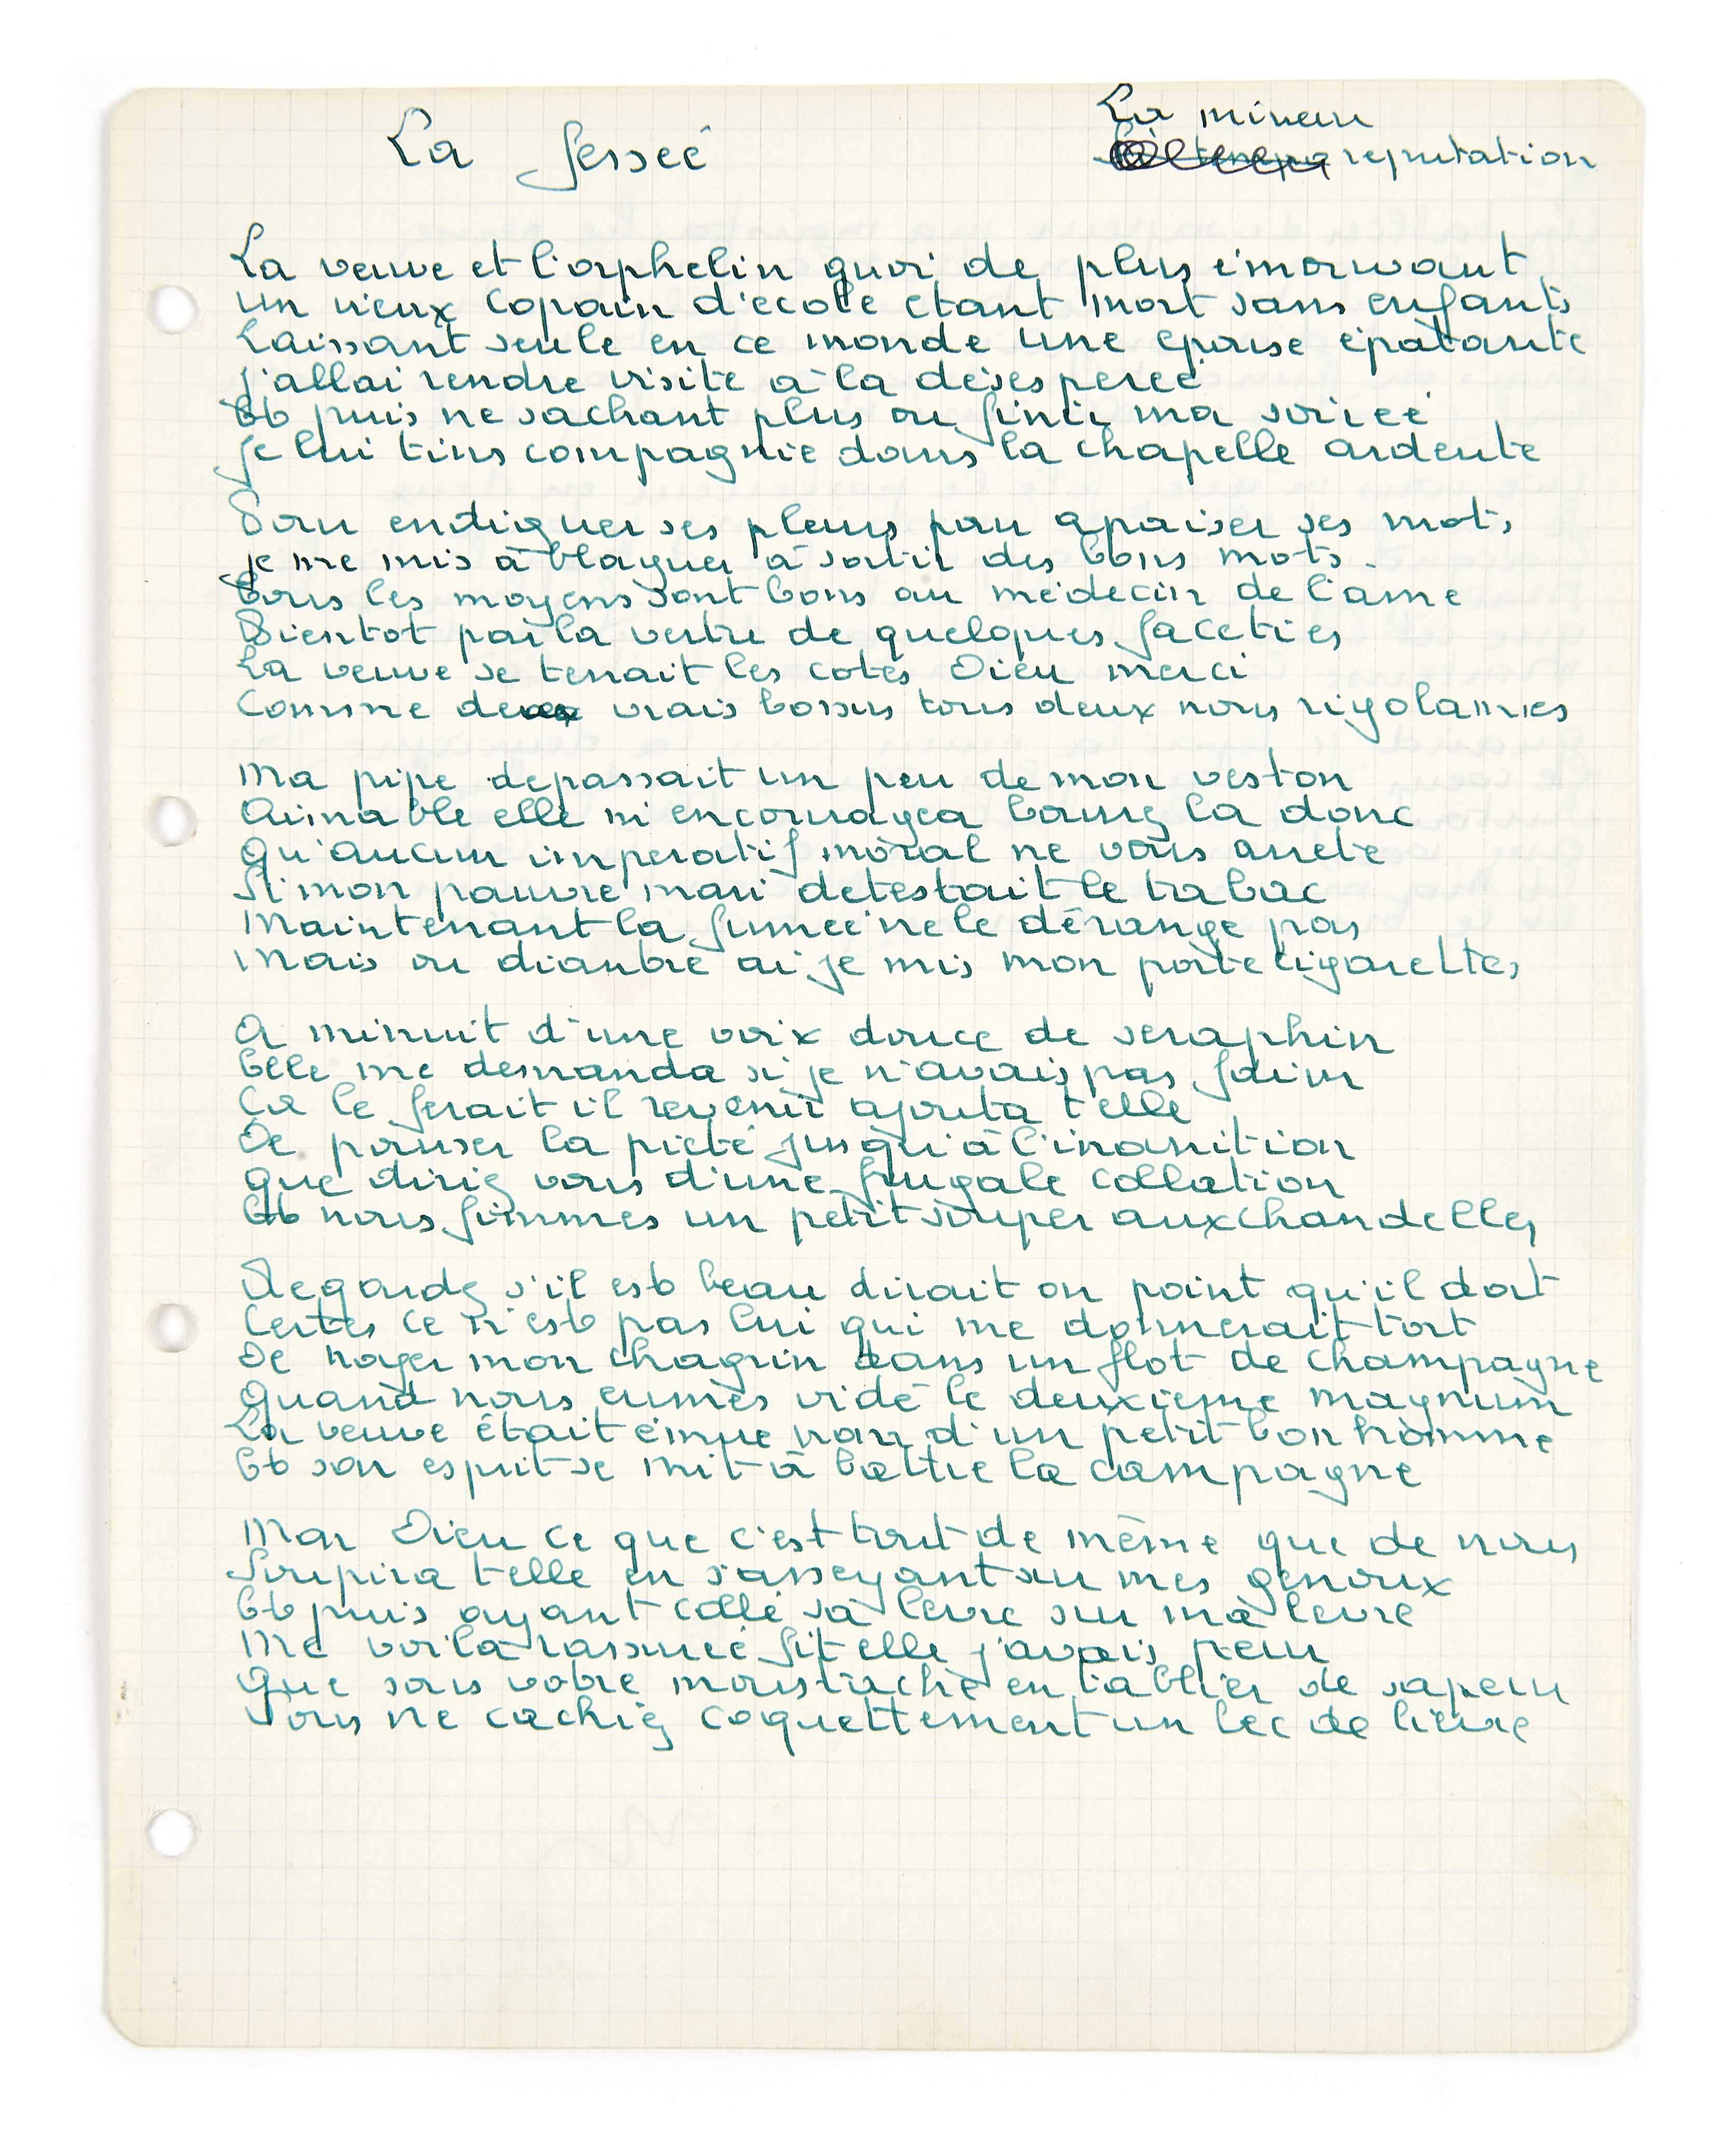 La fesseé
La mineur
reputation
La veuve et l'orphelin quoi de plus émouvant
un vieux copain d'ecole etant mort sans enfants
Laissant seule en ce monde une epouse épatante
j'allai rendre visite à la désespereé
Et puis ne sachant plus ou finir ma soireé
je lui tins compagnie dans la chapelle ardente
Pour endiguer ses pleurs pour apaiser ses mots
je me mis à blaguer à sortir des bons mots
Tous les moyens sont bons au médecin de l'âme
Bientot par la vertu de quelques faceties
La veuve se tenait les cotes Dieu merci
Comme de vrais bossus tous deux nous rigolames
Ma pipe depassait un peu de mon veston
Aimable elle m'encouragea bourrez la donc
Qu'aucun imperatif moral ne vous arrete
Si mon pauvre mari detestait le tabac
Maintenant la fumeé ne le dérange pas
Mais ou diantre ai-je mis mon porte cigarettes
A minuit d'une voix douce de seraphin
Elle me demanda si je n'avais pas faim
Ca le ferait il revenir ajouta t elle
De pousser la pieté jusqu'à l'inanition
Que diriez vous d'une frugale collation
Et nous fimmes un petit souper aux chandelles
Regardez s'il est beau dirait on point qu'il dort
Certes ce n'est pas lui qui me donnerait tort
De noyer mon chagrin dans un flot de champagne
Quand nous eumes vidé le deuxieme magnum
La veuve était émue nom d'un petit bonhomme
Et son esprit se mit à battre la campagne
Mon Dieu ce que c'est tout de même que de nous
Soupira t elle en s'asseyant sur mes genoux
Et puis ayant collé sa levre sur ma levre
Me voilà rassureé fit elle j'avais peur
Que sous votre moustache en tablier de sapeur
Vous ne cachiez coquettement un bec de lievre